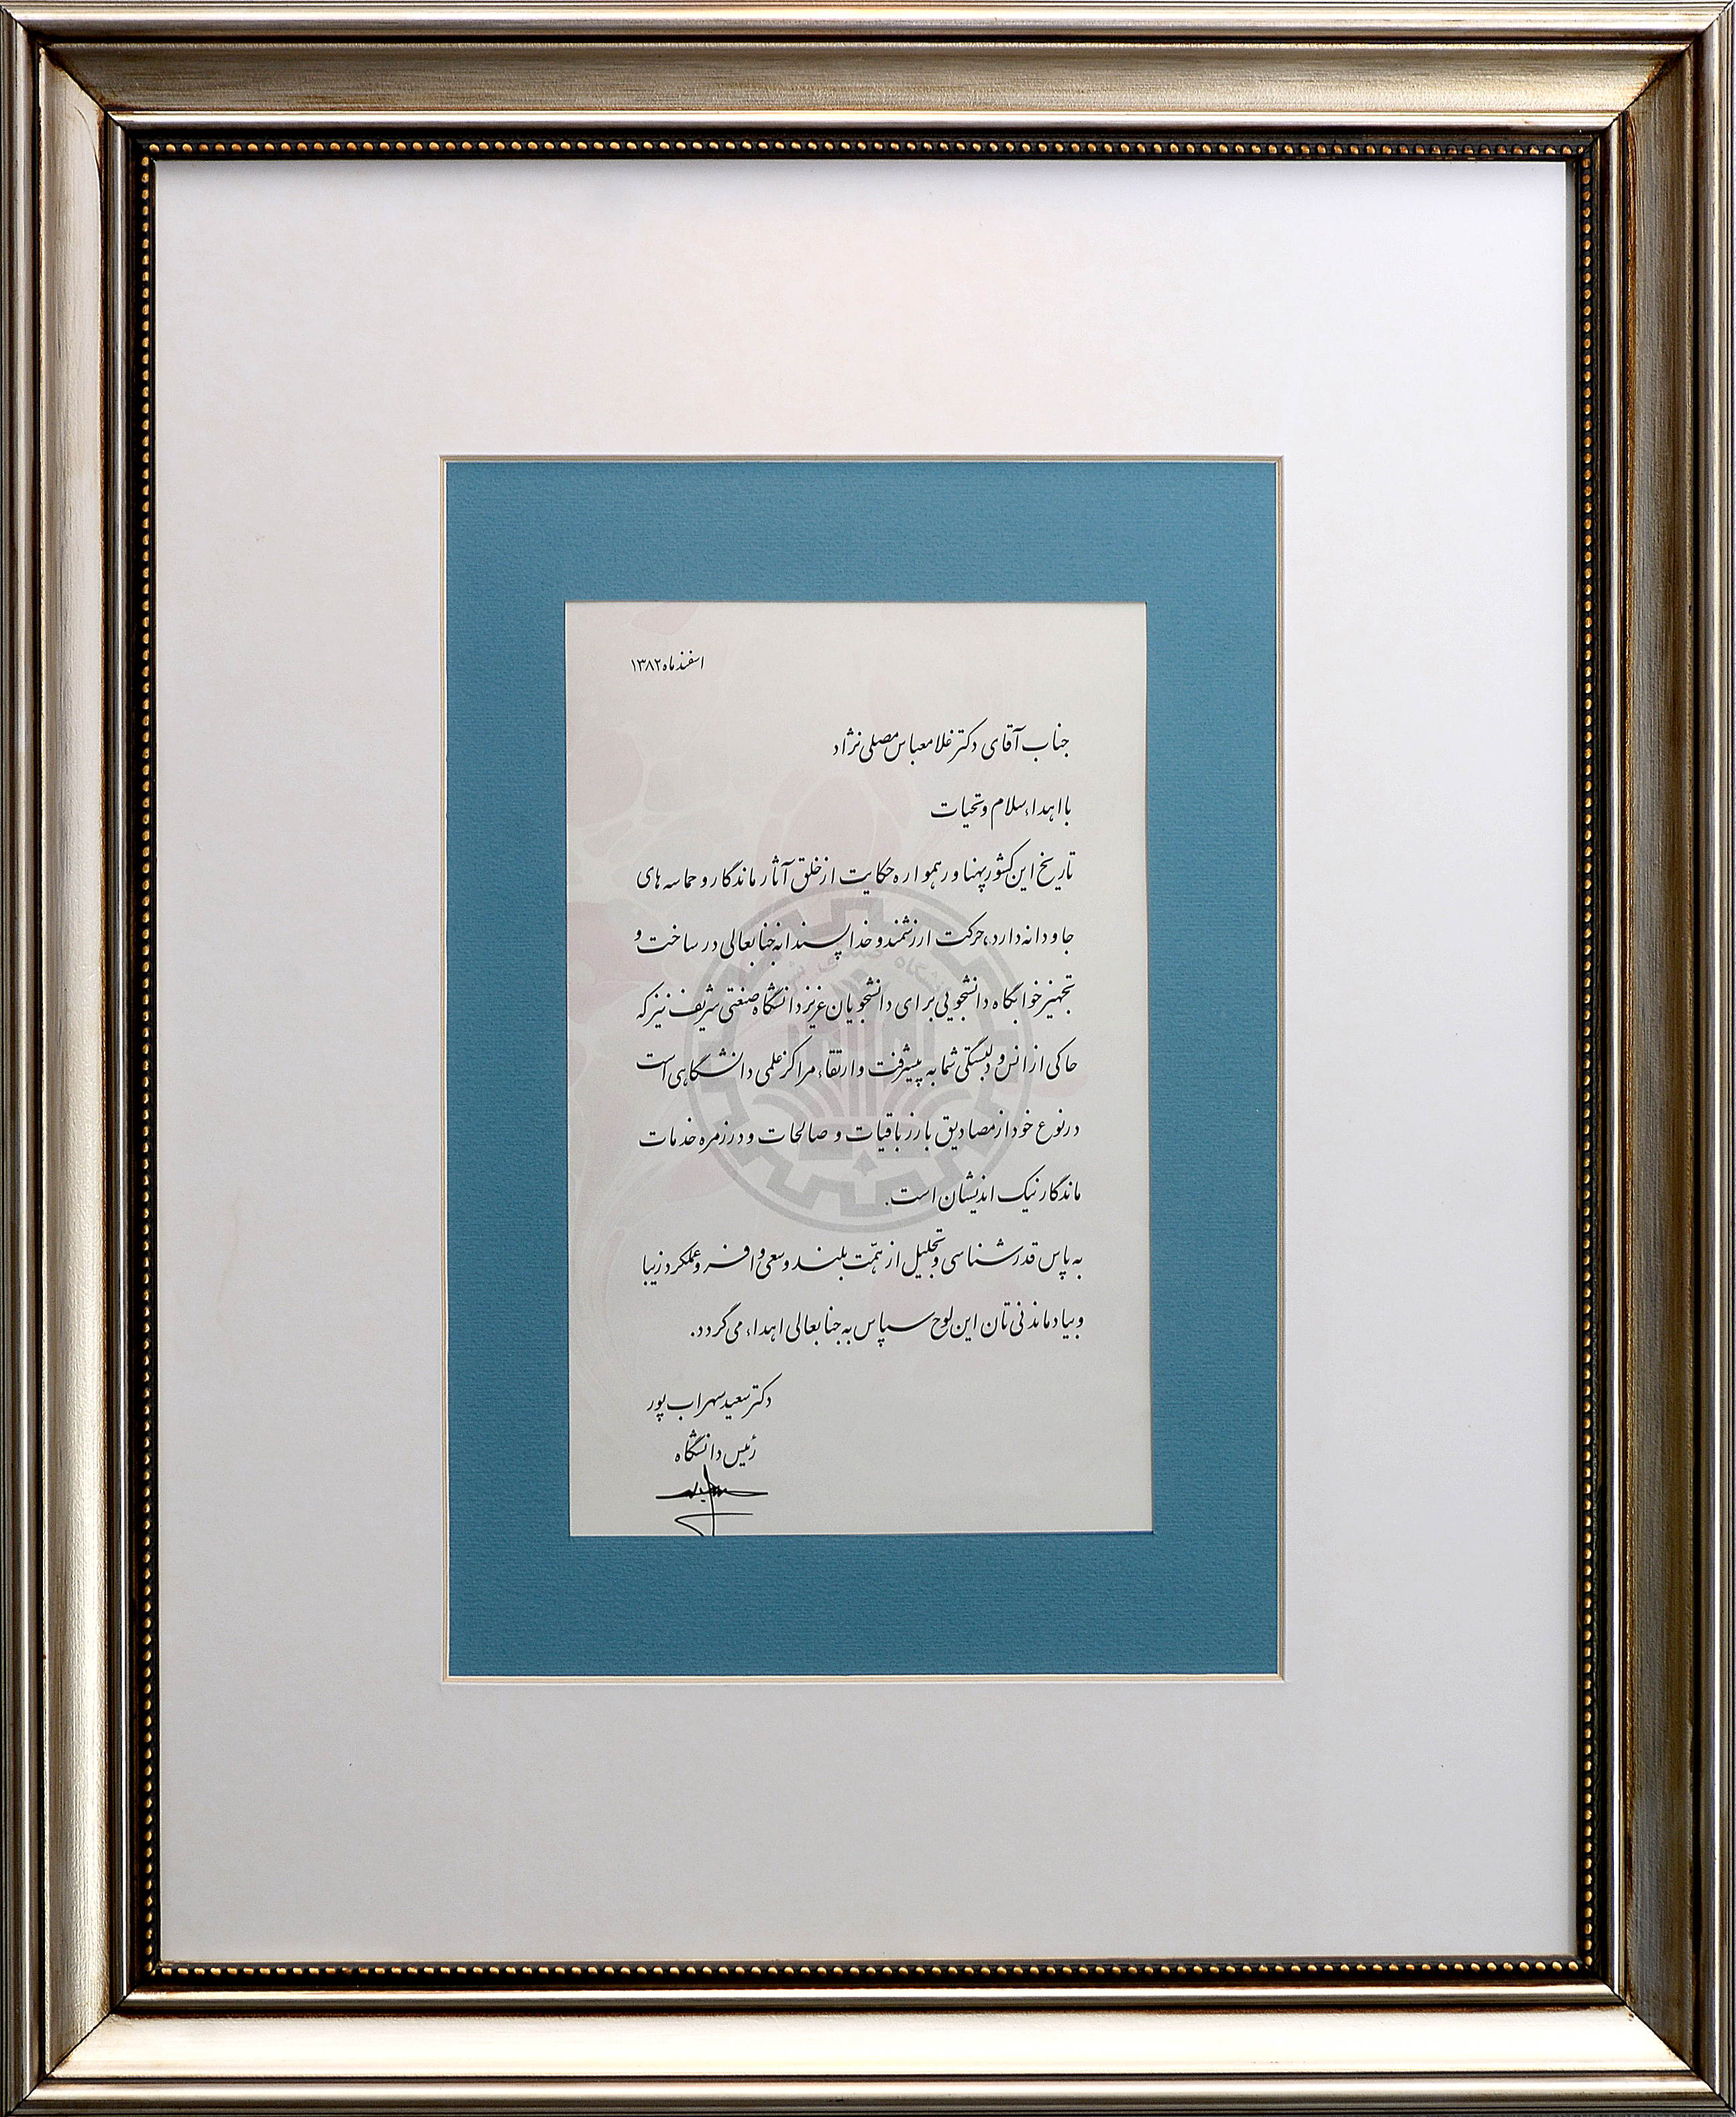 اسفند ماه ۱۳۸۲
جناب آقای دکتر غلامعباس مصلی نژاد
با اهداء سلام و تحیات
تاریخ این کشور پهناور همواره حکایت از خلق آثار ماندگار و حماسه های
جاودانه دارد، حرکت ارزشمند و خداپسندانه جنابعالی در ساخت و
تجهیز خوابگاه دانشجویی برای دانشجویان عزیز دانشگاه صنعتی شریف نیز که
حاکی از انس و دلبستگی شما به پیشرفت و ارتقاء مراکز علمی دانشگاهی است
در نوع خود از مصادیق بارز باقیات و صالحات و در زمره خدمات
ماندگار نیک اندیشان است.
به پاس قدرشناسی و تجلیل از همّت بلند و سعی وافر و عملکرد زیبا
و بیادماندنی تان این لوح سپاس به جنابعالی اهداء می گردد.
دکتر سعید سهراب پور
رئیس دانشگاه